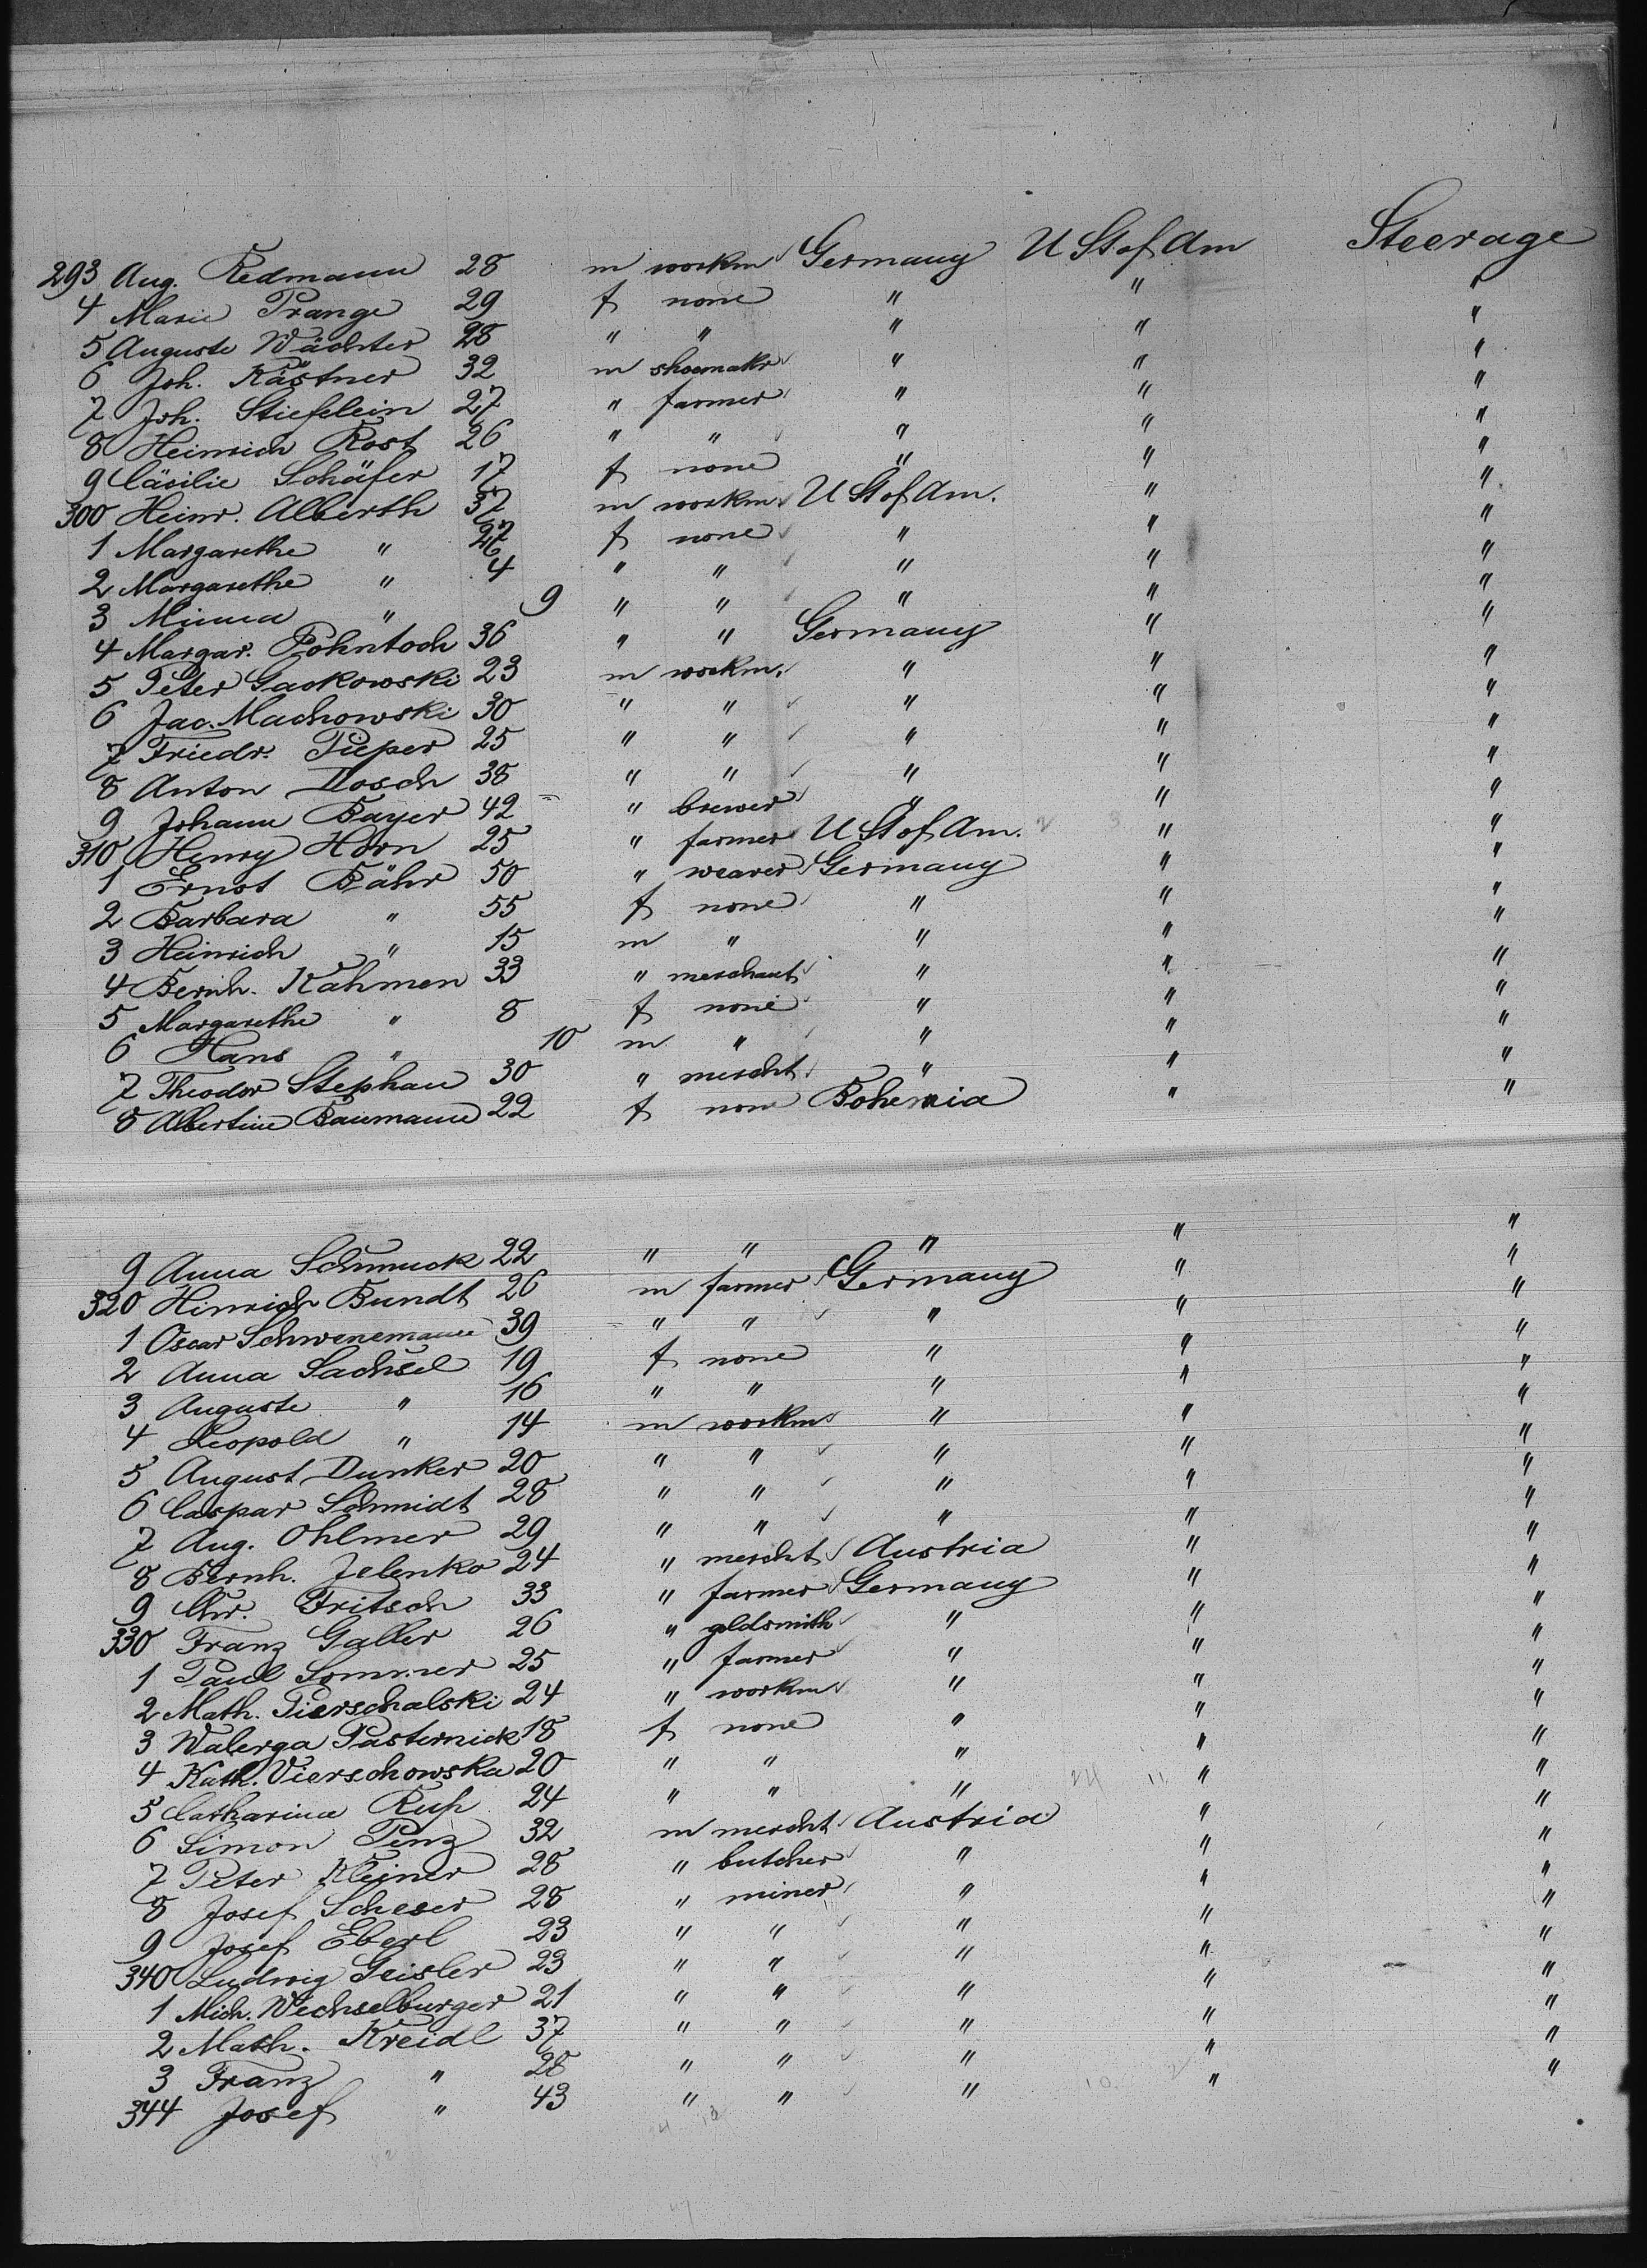 293 Aug. Redmann 28 m workm Germany U St of Am Steerage
4 Marie Prange 29 f none " " "
5 Auguste Wächter 28 " " " " "
6 Joh. Kästner 32 m shoemakr " " "
7 Joh. Stiefelein 27 " farmer " " "
8 Heinrich Rost 26 " " " " "
9 Cäcilie Schäfer 17 f none " " "
300 Heinr. Alberth 37 m workm. U St of Am. " "
1 Margarethe " 27 f none " " "
2 Margarethe " 4 " " " " "
3 Minna " 9 " " " " "
4 Margar. Pohntoch 36 " " Germany " "
5 Peter Gackowski 23 m workm. " " "
6 Jac. Machowski 30 " " " " "
7 Friedr. Pieper 25 " " " " "
8 Anton Dosch 38 " " " " "
9 Johann Bayer 42 " brewer " " "
310 Henry Horn 25 " farmer U St of Am. " "
1 Ernst Bähr 50 " weaver Germany " "
2 Barbara " 55 f none " " "
3 Heinrich " 15 m " " " "
4 Bernh. Kahmen 33 " merchant " " "
5 Margarethe " 8 f none " " "
6 Hans " 10 m " " " "
7 Theodor Stephan 30 " mercht. " " "
8 Albertine Baumann 22 f none Bohemia " "
9 Anna Schmuck 22 " " " " "
320 Hinrich Bundt 26 m farmer Germany " "
1 Oscar Schwenemann 39 " " " " "
2 Anna Sachsel 19 f none " " "
3 Auguste " 16 " " " " "
4 Leopold " 14 m workm " " "
5 August Dunker 20 " " " " "
6 Caspar Schmidt 28 " " " " "
7 Aug. Ohlmer 29 " " " " "
8 Bernh. Jelenko 24 " mercht Austria " "
9 Chr. Fritsch 33 " farmer Germany " "
330 Franz Galler 26 " goldsmith " " "
1 Paul Sommer 25 " farmer " " "
2 Math. Pierschalski 24 " workm " " "
3 Walerga Pasternick 18 f none " " "
4 Kath. Vierschowska 20 " " " " "
5 Catharina Rup 24 " " " " "
6 Simon Penz 32 m mercht Austria " "
7 Peter Kleiner 28 " butcher " " "
8 Josef Scheser 28 " miner " " "
9 Josef Eberl 23 " " " " "
340 Ludwig Geisler 23 " " " " "
1 Mich. Wechselburger 21 " " " " "
2 Math. Kreidl 37 " " " " "
3 Franz " 28 " " " " "
344 Josef " 43 " " " " "